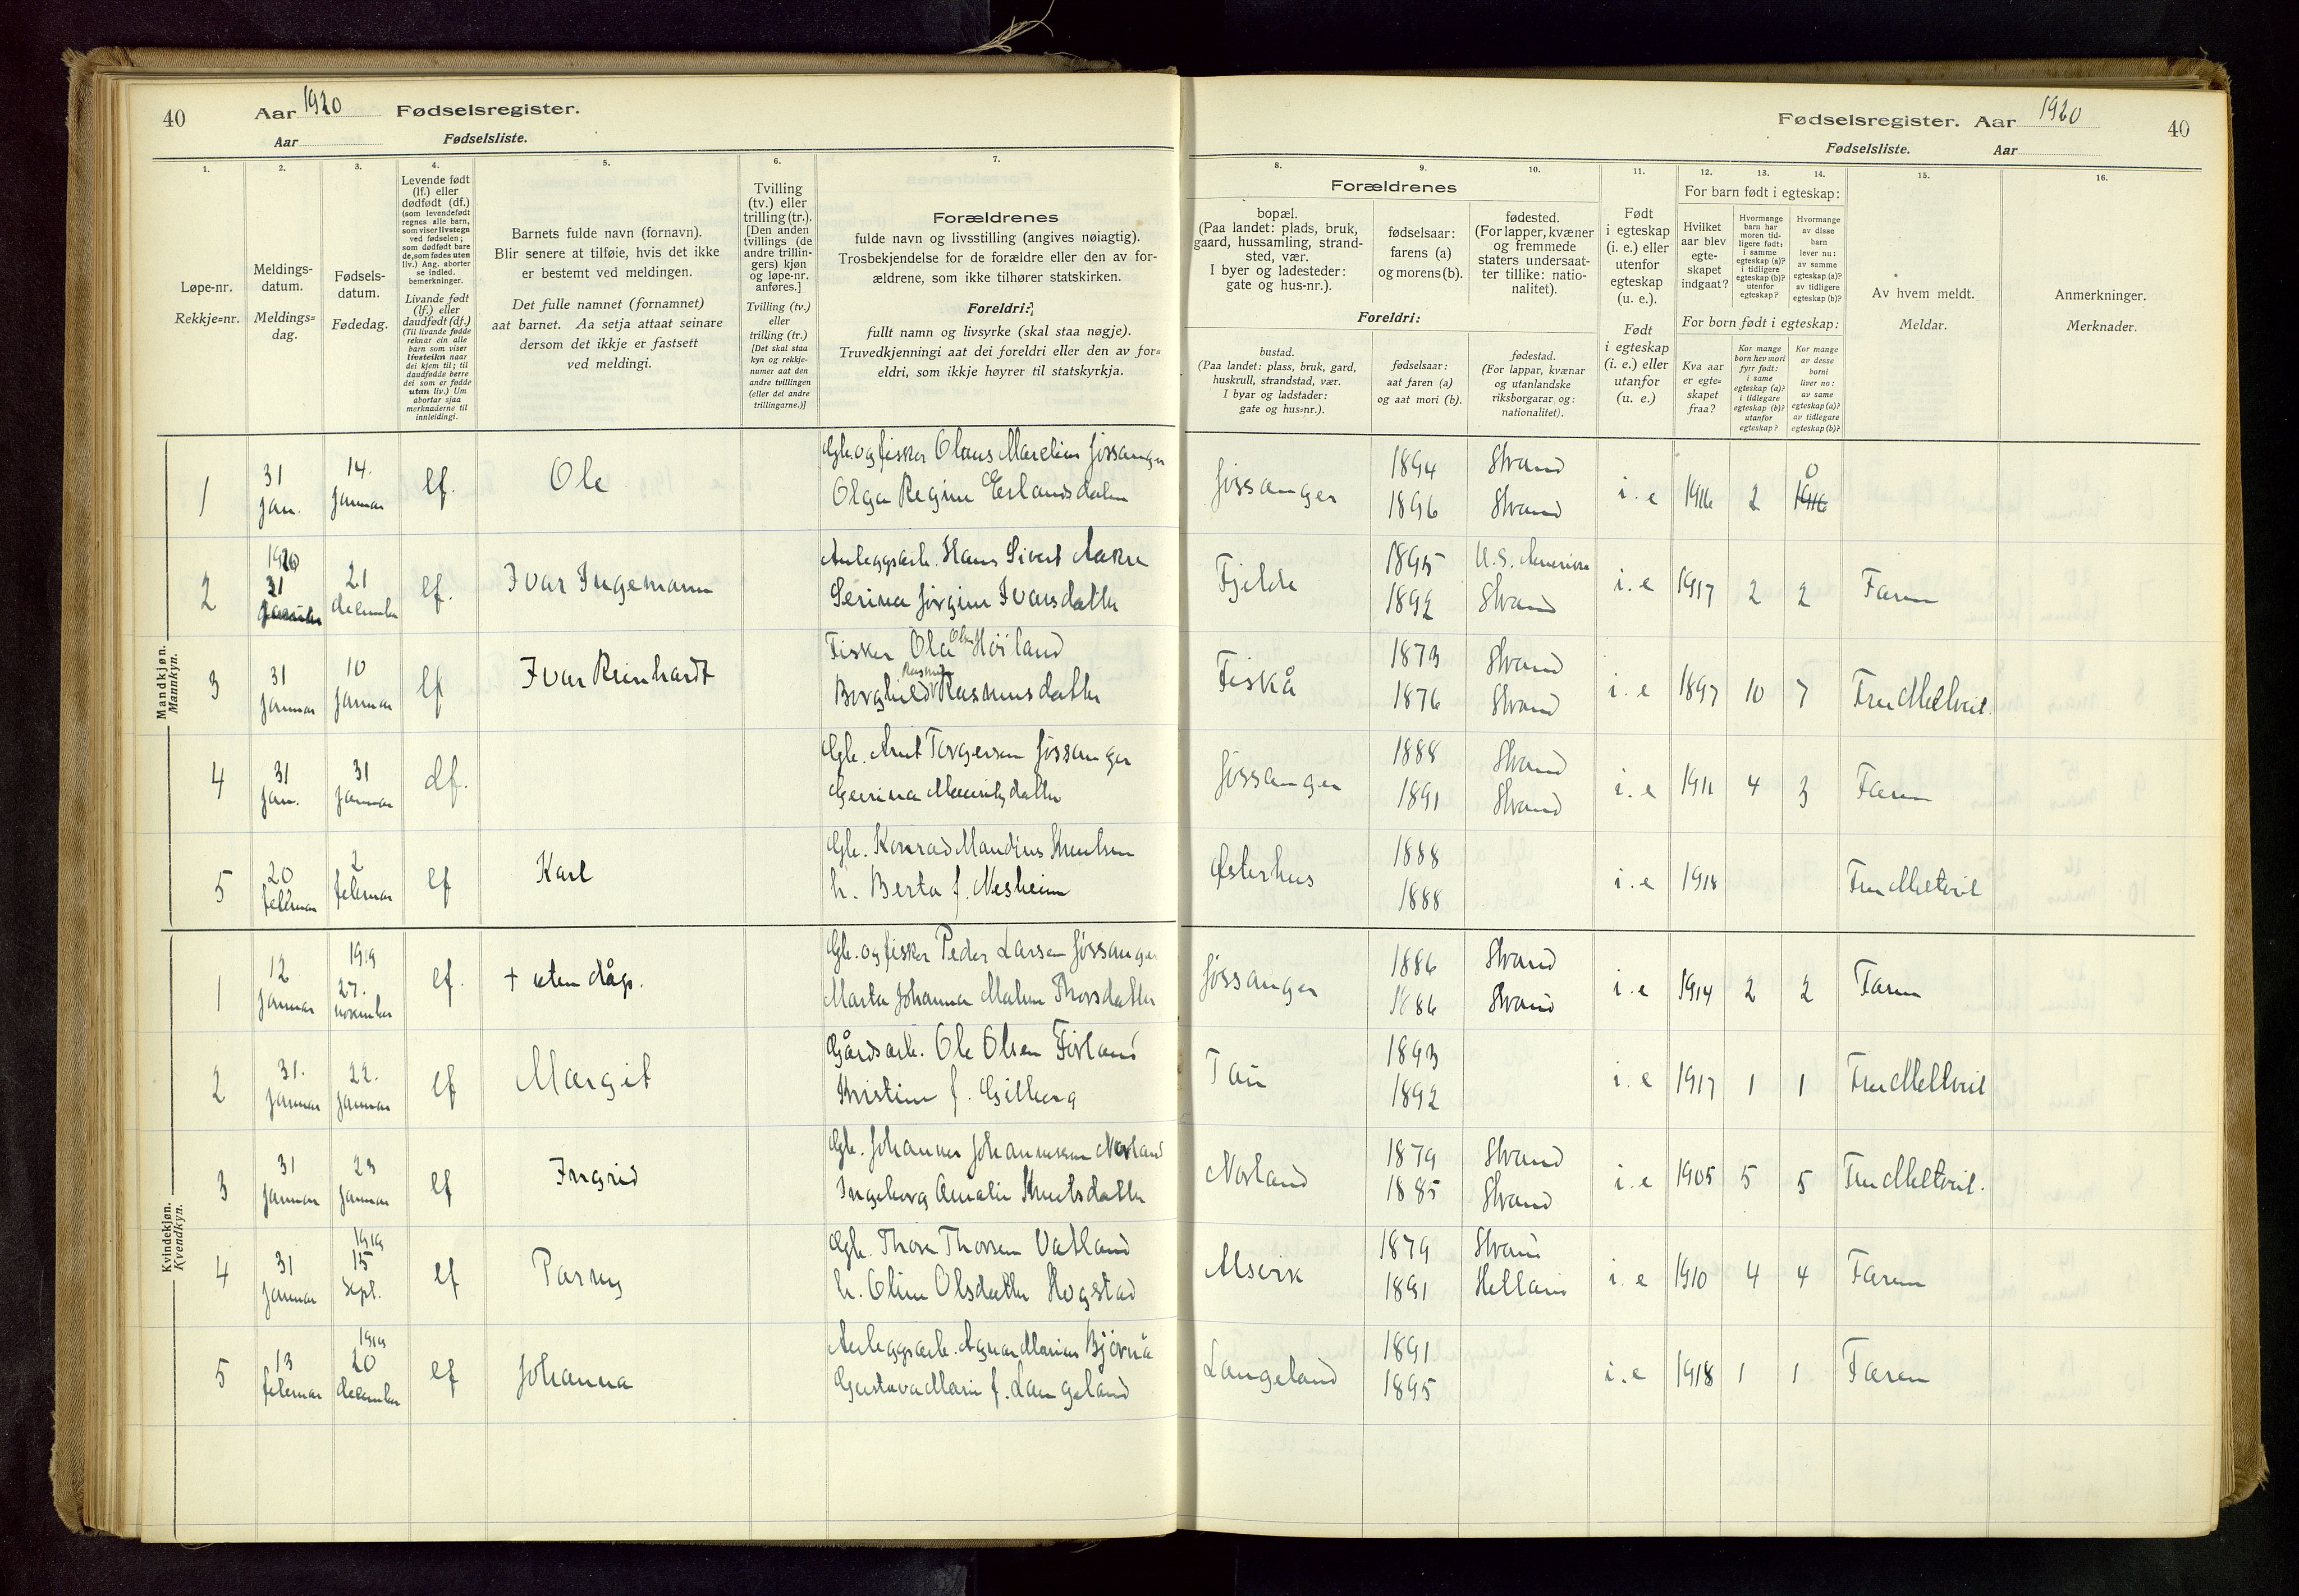 40 Aar 1920 Fødselsregister.
Aar Fødselsliste.
Fødselsregister. Aar 1920 40
Fødselsliste. Aar
1.
Løpe-nr.
Rekkje=nr.
2.
Meldings-
datum.
Meldings=
dag.
3.
Fødsels-
datum.
Fødedag.
4.
Levende født
(lf.) eller
dødfødt (df.)
(som levendefødt
regnes alle barn,
som viser livstegn
ved fødselen;
som dødfødt bare
de, som fødes uten
liv.) Ang. aborter
se indled.
bemerkninger.
Livande født
(lf.) eller
daudfødt (df.)
(Til livande fødde
reknar ein alle
barn som viser
livsteikn naar
dei kjem til; til
daudfødde berre
dei som er fødde
utan liv.) Um
abortar sjaa
merknaderne til
innleidingi.
5.
Barnets fulde navn (fornavn).
Blir senere at tilføie, hvis det ikke
er bestemt ved meldingen.
Det fulle namnet (fornamnet)
aat barnet. Aa setja attaat seinare
dersom det ikkje er fastsett
ved meldingi.
6.
Tvilling
(tv.) eller
trilling (tr.).
[Den anden
tvillings (de
andre trillin-
gers) kjøn
og løpe-nr.
anføres.]
Tvilling (tv.)
eller
trilling (tr.)
[Det skal staa
kyn og rekkje-
numer aat den
andre tvillingen
(eller dei andre
trillingarne.)]
7.
Forældrenes
fulde navn og livsstilling (angives nøiagtig).
Trosbekjendelse for de forældre eller den av for-
ældrene, som ikke tilhører statskirken.
Foreldri:
fullt namn og livsyrke (skal staa nøgje).
Truvedkjenningi aat dei foreldri eller den av for=
eldri, som ikkje høyrer til statskyrkja.
8. 9. 10.
Forældrenes
bopæl.
(Paa landet: plads, bruk,
gaard, hussamling, strand-
sted, vær.
I byer og ladesteder:
gate og hus-nr.).
fødselsaar:
farens (a)
og morens (b).
fødested.
(For lapper, kvæner
og fremmede
staters undersaat-
ter tillike: natio-
nalitet).
Foreldri:
bustad.
(Paa landet: plass, bruk, gard,
huskrull, strandstad, vær.
I byar og ladstader:
gate og hus=nr.).
fødselsaar:
aat faren (a)
og aat mori (b).
fødestad.
(For lappar, kvænar
og utanlandske
riksborgarar og:
nationalitet).
11.
Født
i egteskap
(i. e.) eller
utenfor
egteskap
(u. e.).
Født
i egteskap
(i. e.) eller
utanfor
(u. e.)
12. 13. 14.
For barn født i egteskap:
Hvilket
aar blev
egte-
skapet
indgaat?
Hvormange
barn har
moren tid-
ligere født:
i samme
egteskap (a)?
i tidligere
egteskap (b)?
utenfor
egteskap?
Hvormange
av disse
barn
lever nu:
av samme
egteskap (a)?
av tidligere
egteskap (b)?
For born født i egteskap:
Kva aar
er egte=
skapet
fraa?
Kor mange
born hev mori
fyrr født:
i same
egteskap (a)?
i tidlegare
egteskap (b)?
utanfor
egteskap?
Kor mange
av desse
borni
liver no:
av same
egteskap (a)?
av tidlegare
egteskap (b)?
15.
Av hvem meldt.
Meldar.
16.
Anmerkninger.
Merknader.
Mandkjøn.
Mannkyn.
1 31 jan. 14. januar lf. Ole Gbr. og fisker Olaus Marelius Jøssanger Jøssanger 1894 Strand i. e 1916 2 0
Olga Regine Erlandsdatter 1896 Strand
2 1920 31 januar 21 december lf. Ivar Ingemann Anleggsarb. Hans Sivert Aakre Fjelde 1895 U.S. Amerika i. e 1917 2 2 Faren
Serina Jørgine Ivarsdatter 1892 Strand
3 31 januar 10 januar lf Ivar Reinhardt Fisker Ole Olsen Höiland Fiskå 1873 Strand i. e 1897 10 7 Fru Meltveit.
Borghild Rasmusdatter 1876 Strand
4 31 jan. 31 januar df. Gbr. Arnt Torgersen Jøssanger Jøssanger 1888 Strand i. e 1911 4 3 Faren
1891 Strand
5 20 februar 2 februar lf Karl Gbr. Konrad Maudius Knutsen Østerhus 1888 i. e 1918 Fru Meltveit
h. Berta f. Nesheim 1888
Kvindekjøn.
Kvendkyn.
1 12 januar 1919 27. november lf. + uten dåp. Gbr. og fisker Peder Larsen Jøssanger Jøssanger 1886 Strand i. e 1914 2 2 Faren
Marta Johanna Malene Thorsdatter 1886 Strand
2 31. januar 22. januar lf Margit Gårdsarb. Ole Olsen Tau 1893 i. e 1917 1 1 Fru Meltveit
Kristine f. Gilberg 1892
3 31 januar 23 januar lf Ingrid Gbr. Johannes Johannessen Norland Norland 1879 Strand i. e 1905 5 5 Fru Meltveit.
Ingeborg Amalie Knutsdatter 1885 Strand
4 31 januar 1919 15 sept. lf Parny Gbr. Thore Thorsen Vatland Alsvik 1879 Strand i. e 1910 4 4 Faren
h. Oline Olsdatter Hogstad 1891 Helland
5 13 februar 1919 20 december lf Johanna Anleggsarb. Agnar Marius Björnå Langeland 1891 i. e 1918 1 1 Faren
Gustava Marie f. Langeland 1895